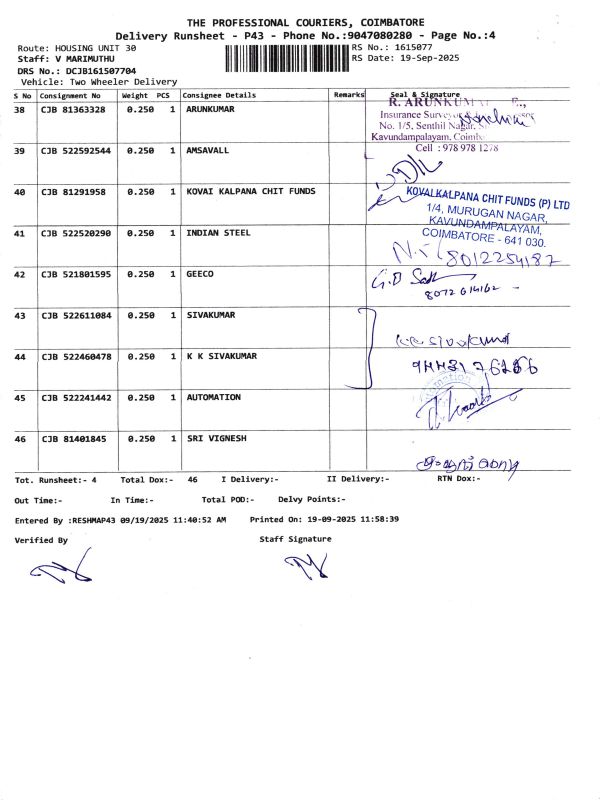 THE PROFESSIONAL COURIERS, COIMBATORE
Delivery Runsheet - P43 - Phone No.:9047080280 - Page No.:4
Route: HOUSING UNIT 30 RS No.: 1615077
Staff: V MARIMUTHU RS Date: 19-Sep-2025
DRS No.: DCJB161507704
Vehicle: Two Wheeler Delivery
S No Consignment No Weight PCS Consignee Details Remarks Seal & Signature
38 CJB 81363328 0.250 1 ARUNKUMAR
R. ARUNKUMAR
Insurance Surveyor
No. 1/5, Senthil Nagar,
Kavundampalayam, Coimb
Cell : 978 978 1278
39 CJB 522592544 0.250 1 AMSAVALL
40 CJB 81291958 0.250 1 KOVAI KALPANA CHIT FUNDS
KOVAI KALPANA CHIT FUNDS (P) LTD
1/4, MURUGAN NAGAR,
KAVUNDAMPALAYAM,
COIMBATORE - 641 030.
41 CJB 522520290 0.250 1 INDIAN STEEL
8012254187
42 CJB 521801595 0.250 1 GEECO
8072 614162
43 CJB 522611084 0.250 1 SIVAKUMAR
44 CJB 522460478 0.250 1 K K SIVAKUMAR
45 CJB 522241442 0.250 1 AUTOMATION
46 CJB 81401845 0.250 1 SRI VIGNESH
Tot. Runsheet:- 4 Total Dox:- 46 I Delivery:- II Delivery:- RTN Dox:-
Out Time:- In Time:- Total POD:- Delvy Points:-
Entered By :RESHMAP43 09/19/2025 11:40:52 AM Printed On: 19-09-2025 11:58:39
Verified By Staff Signature